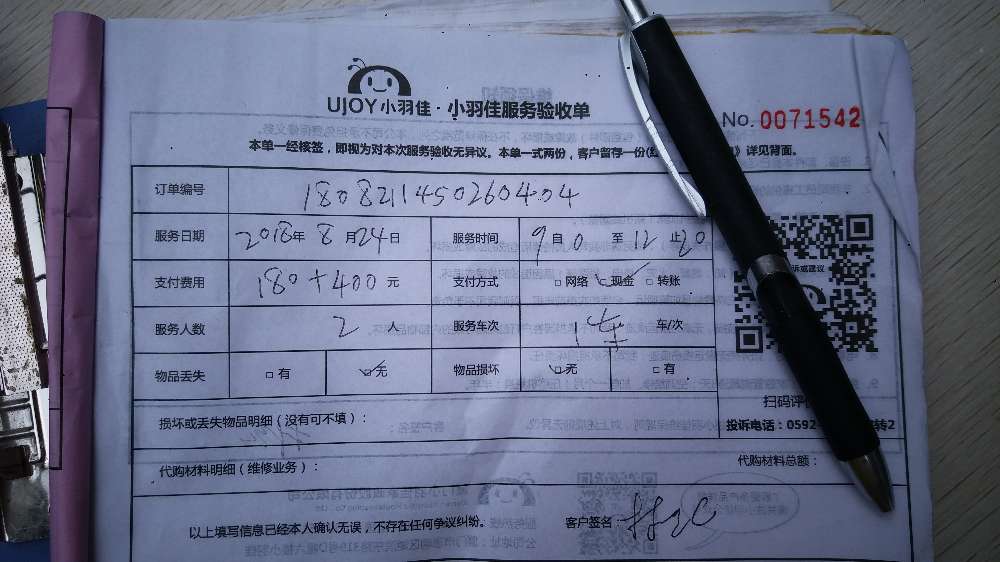 UJOY小羽佳·小羽佳服务验收单
No. 0071542
本单一经核签，即视为对本次服务验收无异议。本单一式两份，客户留存一份 》详见背面。
订单编号 1808211450260404
服务日期 2018年8月24日 服务时间 9自0至12止20
支付费用 180+400元 支付方式 □网络 ☑现金 □转账
服务人数 2人 服务车次 1 车/次
物品丢失 □有 ☑无 物品损坏 ☑无 □有
诉或建议
扫码评
损坏或丢失物品明细（没有可不填）：
投诉电话：0592 转2
代购材料明细（维修业务）： 代购材料总额：
以上填写信息已经本人确认无误，不存在任何争议纠纷。 客户签名：